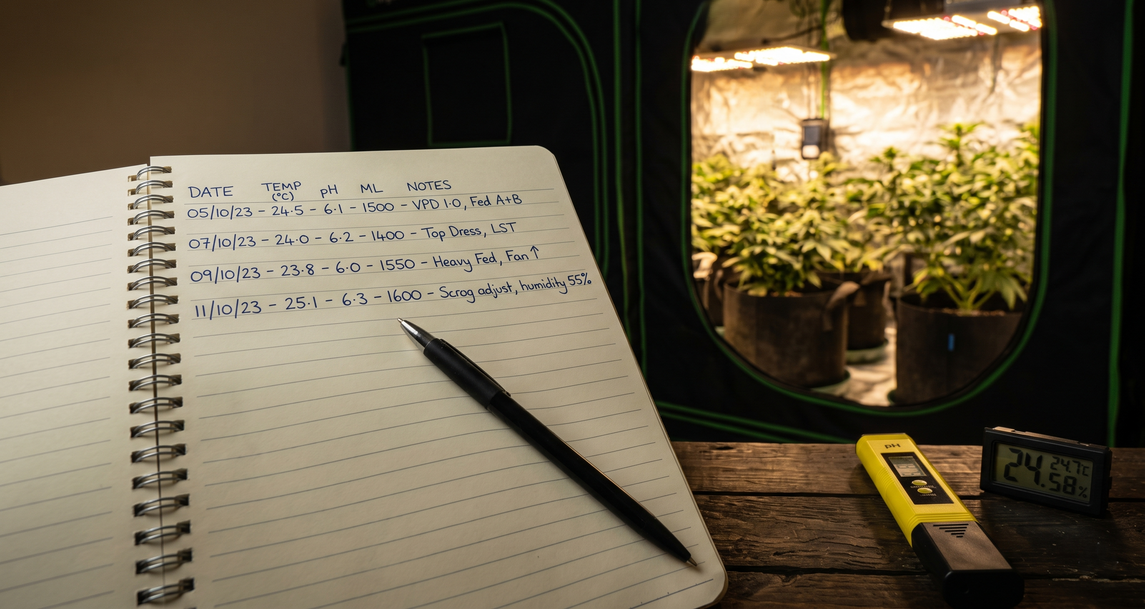 DATE TEMP (°C) pH ML NOTES
05/10/23 - 24.5 - 6.1 - 1500 - VPD 1.0, Fed A+B
07/10/23 - 24.0 - 6.2 - 1400 - Top Dress, LST
09/10/23 - 23.8 - 6.0 - 1550 - Heavy Fed, Fan ↑
11/10/23 - 25.1 - 6.3 - 1600 - Scrog adjust, humidity 55%
pH
24 24.7c
24.58%